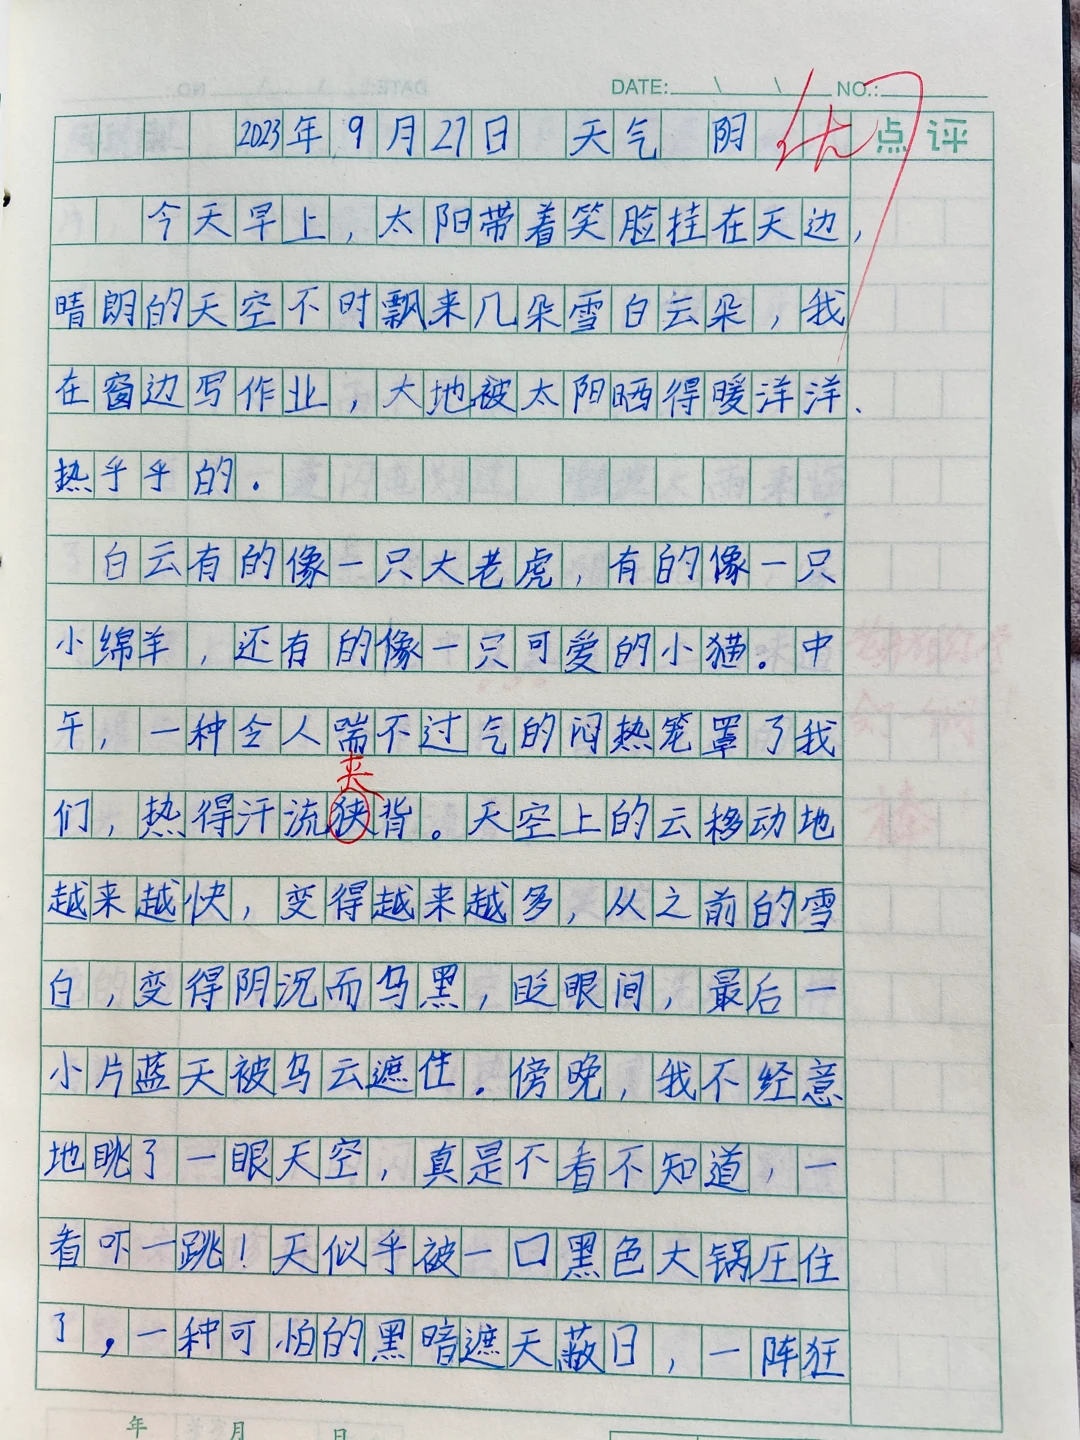 DATE: \ \ NO.:
2023年9月27日 天气 阴 优 点评
今天早上，太阳带着笑脸挂在天边，
晴朗的天空不时飘来几朵雪白云朵，我
在窗边写作业，大地被太阳晒得暖洋洋、
热乎乎的.
白云有的像一只大老虎，有的像一只
小绵羊，还有的像一只可爱的小猫。中
午，一种令人喘不过气的闷热笼罩了我
夹
们，热得汗流狭背。天空上的云移动地
越来越快，变得越来越多，从之前的雪
白，变得阴沉而乌黑，眨眼间，最后一
小片蓝天被乌云遮住.傍晚，我不经意
地眺了一眼天空，真是不看不知道，一
看吓一跳！天似乎被一口黑色大锅压住
了，一种可怕的黑暗遮天蔽日，一阵狂
年 月 日